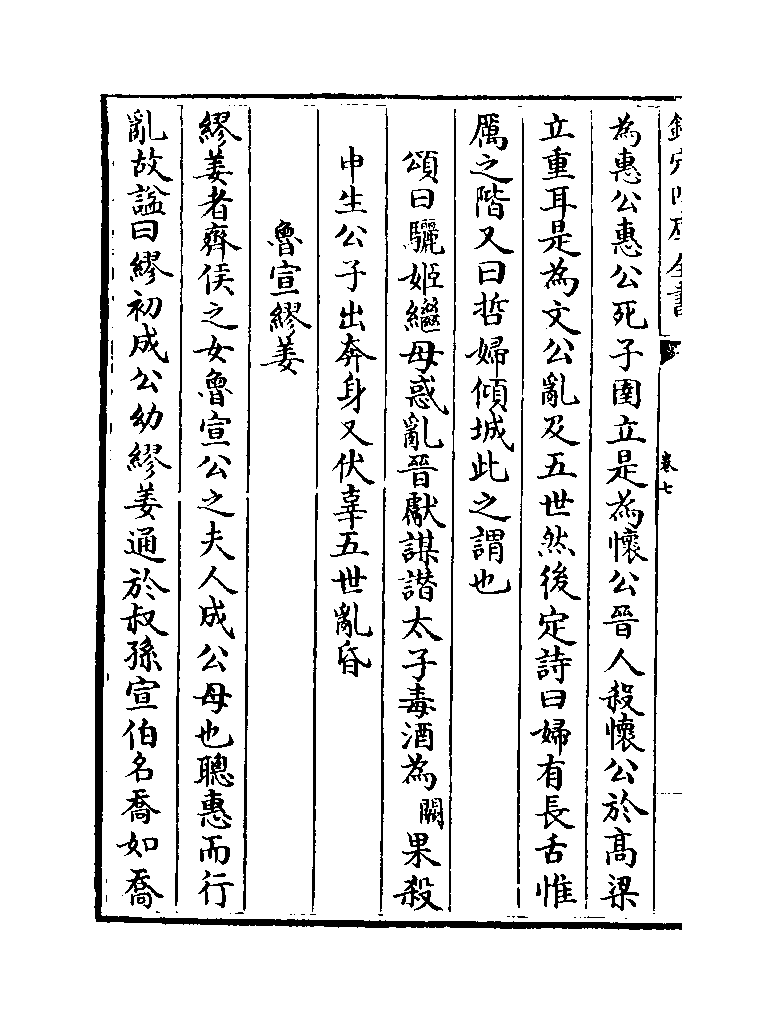 欽定四庫全書
卷七
為惠公惠公死子圉立是為懷公晉人殺懷公於髙梁
立重耳是為文公亂及五世然後定詩曰婦有長舌惟
厲之階又曰哲婦傾城此之謂也
頌曰驪姬繼母惑亂晉獻謀譖太子毒酒為闕果殺
申生公子出奔身又伏辜五世亂昏
魯宣繆姜
繆姜者齊侯之女魯宣公之夫人成公母也聰惠而行
亂故諡曰繆初成公幼繆姜通於叔孫宣伯名喬如喬